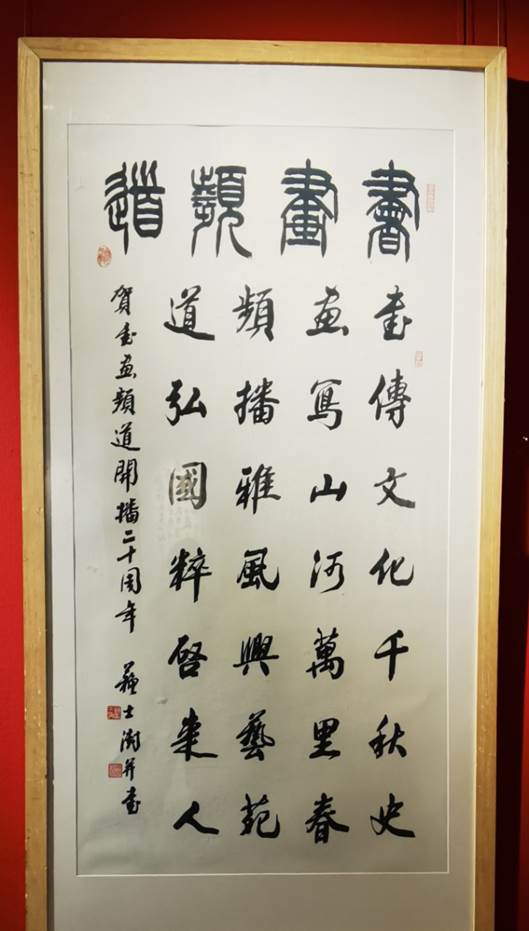 書畫頻道
書傳文化千秋史
画寫山河萬里春
頻播雅風興藝苑
道弘國粹啓來人
賀書画頻道開播二十周年
蘇士澍并書